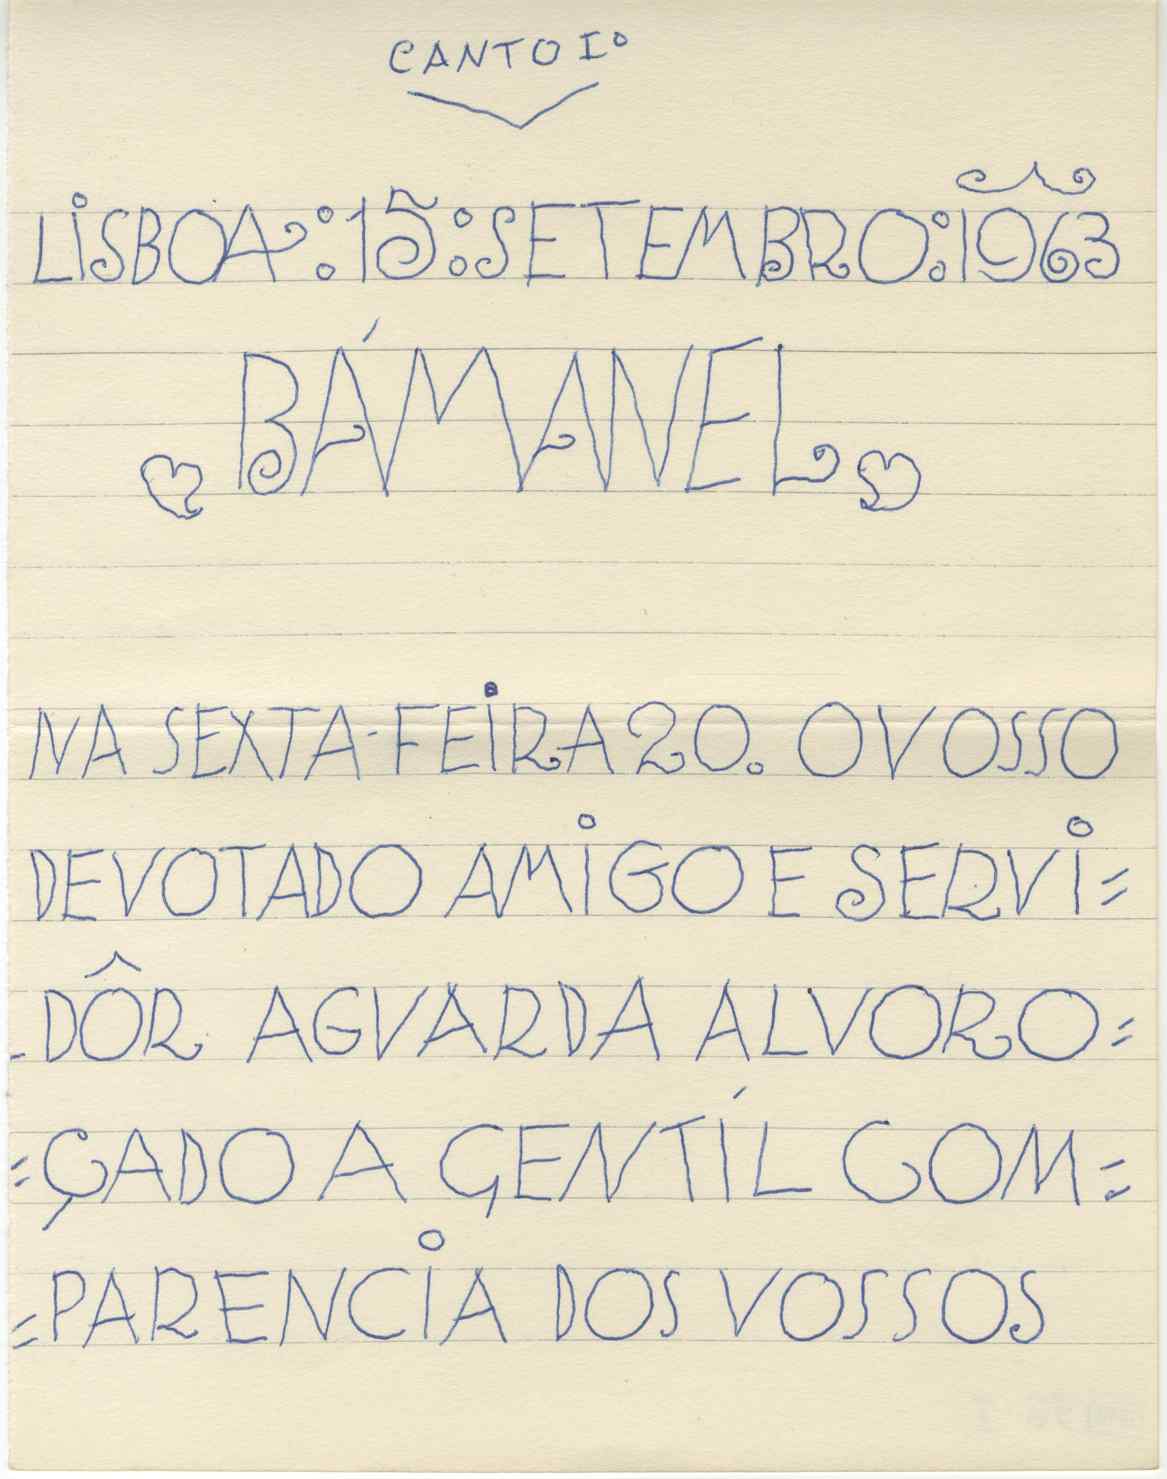 CANTO Iº
LISBOA:15:SETEMBRO:1963
BÁMANEL
NA SEXTA-FEIRA 20. O VOSSO
DEVOTADO AMIGO E SERVI=
-DÔR AGUARDA ALVORO=
=ÇADO A GENTÍL COM=
=PARENCIA DOS VOSSOS